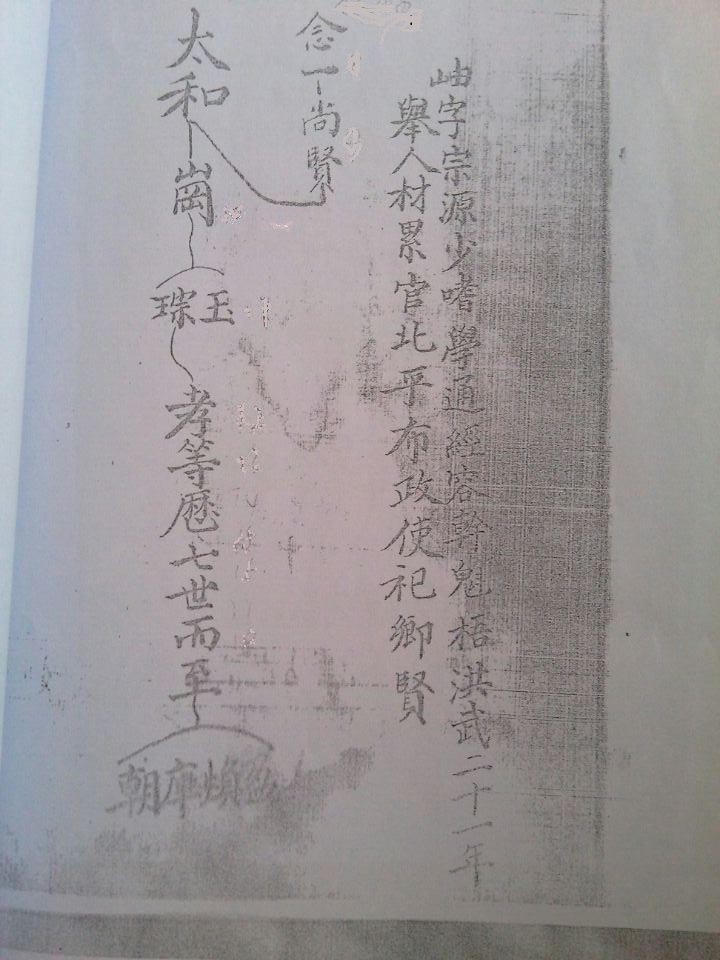 岫字宗源少嗜學通經容幹魁梧洪武二十一年
舉人材累官北平布政使祀鄉賢
念一尚賢
太和崗
玉
琮
孝等歷七世而至
朝